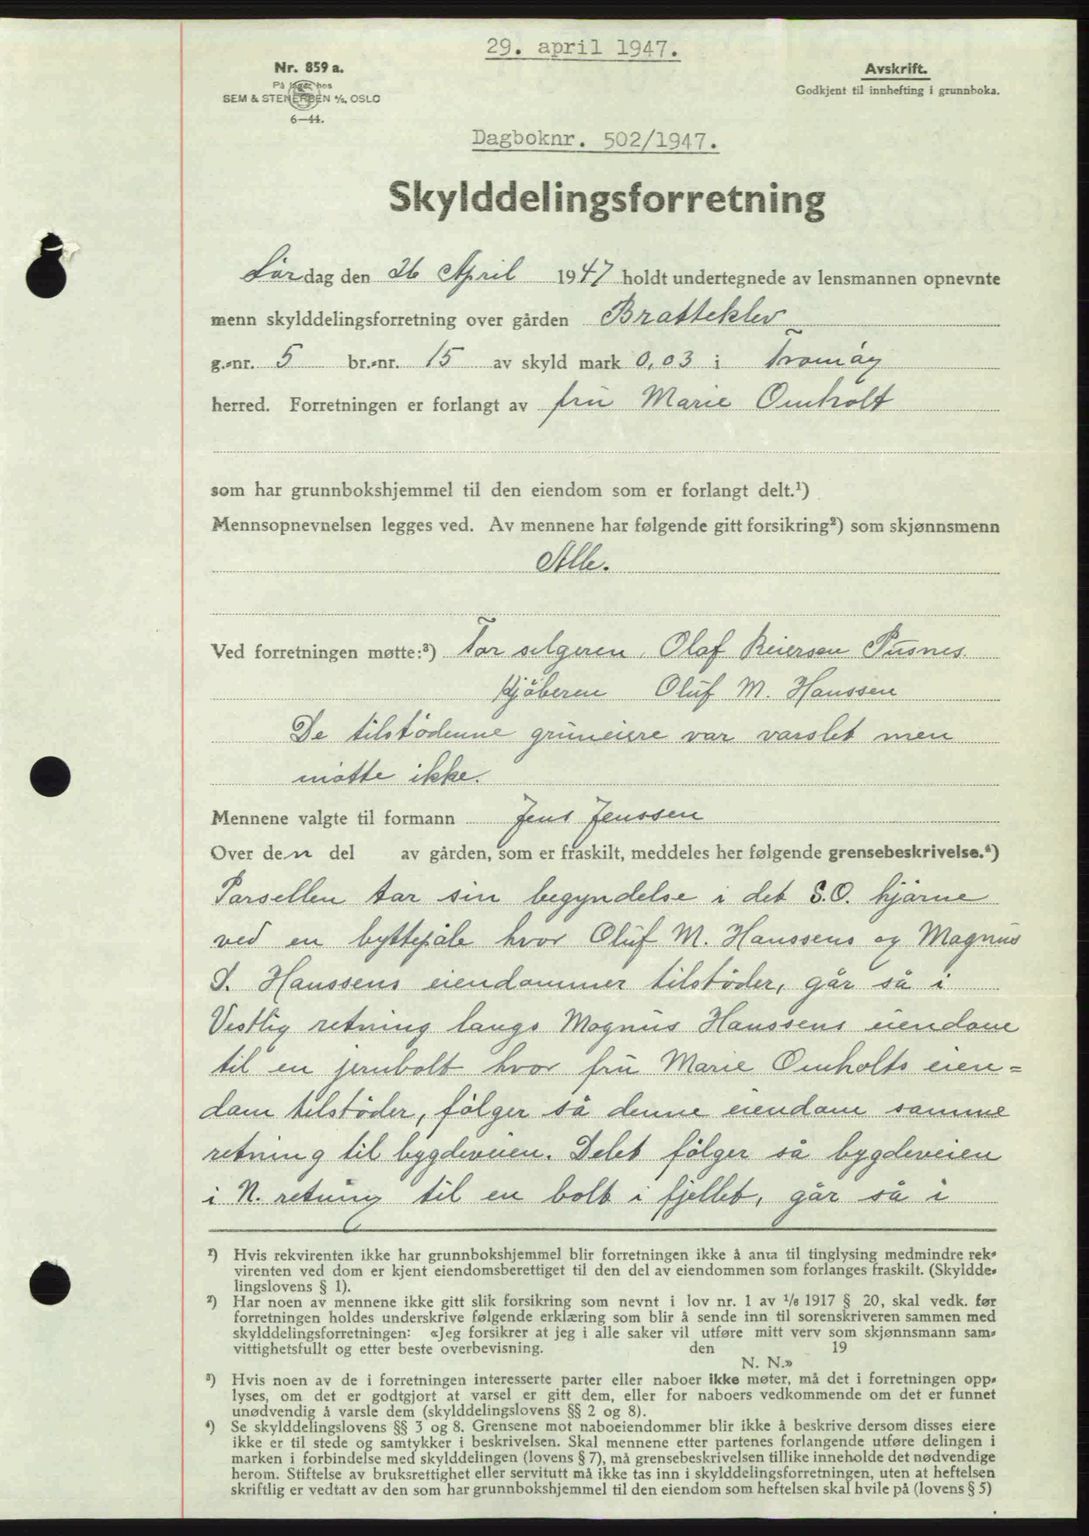 29. april 1947.
Nr. 859 a.
På lager hos
SEM & STENERSEN A/S, OSLO
6—44.
Avskrift.
Godkjent til innhefting i grunnboka.
Dagboknr. 502/1947.
Skylddelingsforretning
Lørdag den 26 April 1947 holdt undertegnede av lensmannen opnevnte
menn skylddelingsforretning over gården Bratteklev
g.-nr. 5 br.-nr. 15 av skyld mark 0,03 i Tromøy
herred. Forretningen er forlangt av fru Marie Omholt
som har grunnbokshjemmel til den eiendom som er forlangt delt.¹)
Mennsopnevnelsen legges ved. Av mennene har følgende gitt forsikring²) som skjønnsmenn
Alle.
Ved forretningen møtte:³) For selgeren, Olaf Reiersen Pusnes
Kjøberen Oluf M. Hanssen
De tilstødenne gruneiere var varslet men
møtte ikke.
Mennene valgte til formann Jens Jenssen
Over den del av gården, som er fraskilt, meddeles her følgende grensebeskrivelse.⁴)
Parsellen tar sin begyndelse i det S.O. hjørne
ved en byttepåle hvor Oluf M. Hanssens og Magnus
S. Hanssens eiendommer tilstøder, går så i
Vestlig retning langs Magnus Hanssens eiendom
til en jernbolt hvor fru Marie Omholts eien=
dom tilstøder, følger så denne eiendom samme
retning til bygdeveien. Delet følger så bygdeveien
i N. retning til en bolt i fjellet, går så i
¹) Hvis rekvirenten ikke har grunnbokshjemmel blir forretningen ikke å anta til tinglysing medmindre rek-
virenten ved dom er kjent eiendomsberettiget til den del av eiendommen som forlanges fraskilt. (Skyldde-
lingslovens § 1).
²) Har noen av mennene ikke gitt slik forsikring som nevnt i lov nr. 1 av 1/6 1917 § 20, skal vedk. før
forretningen holdes underskrive følgende erklæring som blir å sende inn til sorenskriveren sammen med
skylddelingsforretningen: «Jeg forsikrer at jeg i alle saker vil utføre mitt verv som skjønnsmann sam-
vittighetsfullt og etter beste overbevisning. den 19
N. N.»
³) Hvis noen av de i forretningen interesserte parter eller naboer ikke møter, må det i forretningen opp-
lyses, om det er godtgjort at varsel er gitt dem, eller for naboers vedkommende om det er funnet
unødvendig å varsle dem (skylddelingslovens §§ 2 og 8).
⁴) Se skylddelingslovens §§ 3 og 8. Grensene mot naboeiendommer blir ikke å beskrive dersom disses eiere
ikke er til stede og samtykker i beskrivelsen. Skal mennene etter partenes forlangende utføre delingen i
marken i forbindelse med skylddelingen (lovens § 7), må grensebeskrivelsen tillike inneholde det nødvendige
herom. Stiftelse av bruksrettighet eller servitutt må ikke tas inn i skylddelingsforretningen, uten at heftelsen
skriftlig er vedtatt av den som har grunnbokshjemmel til den eiendom som heftelsen skal hvile på (lovens § 5)